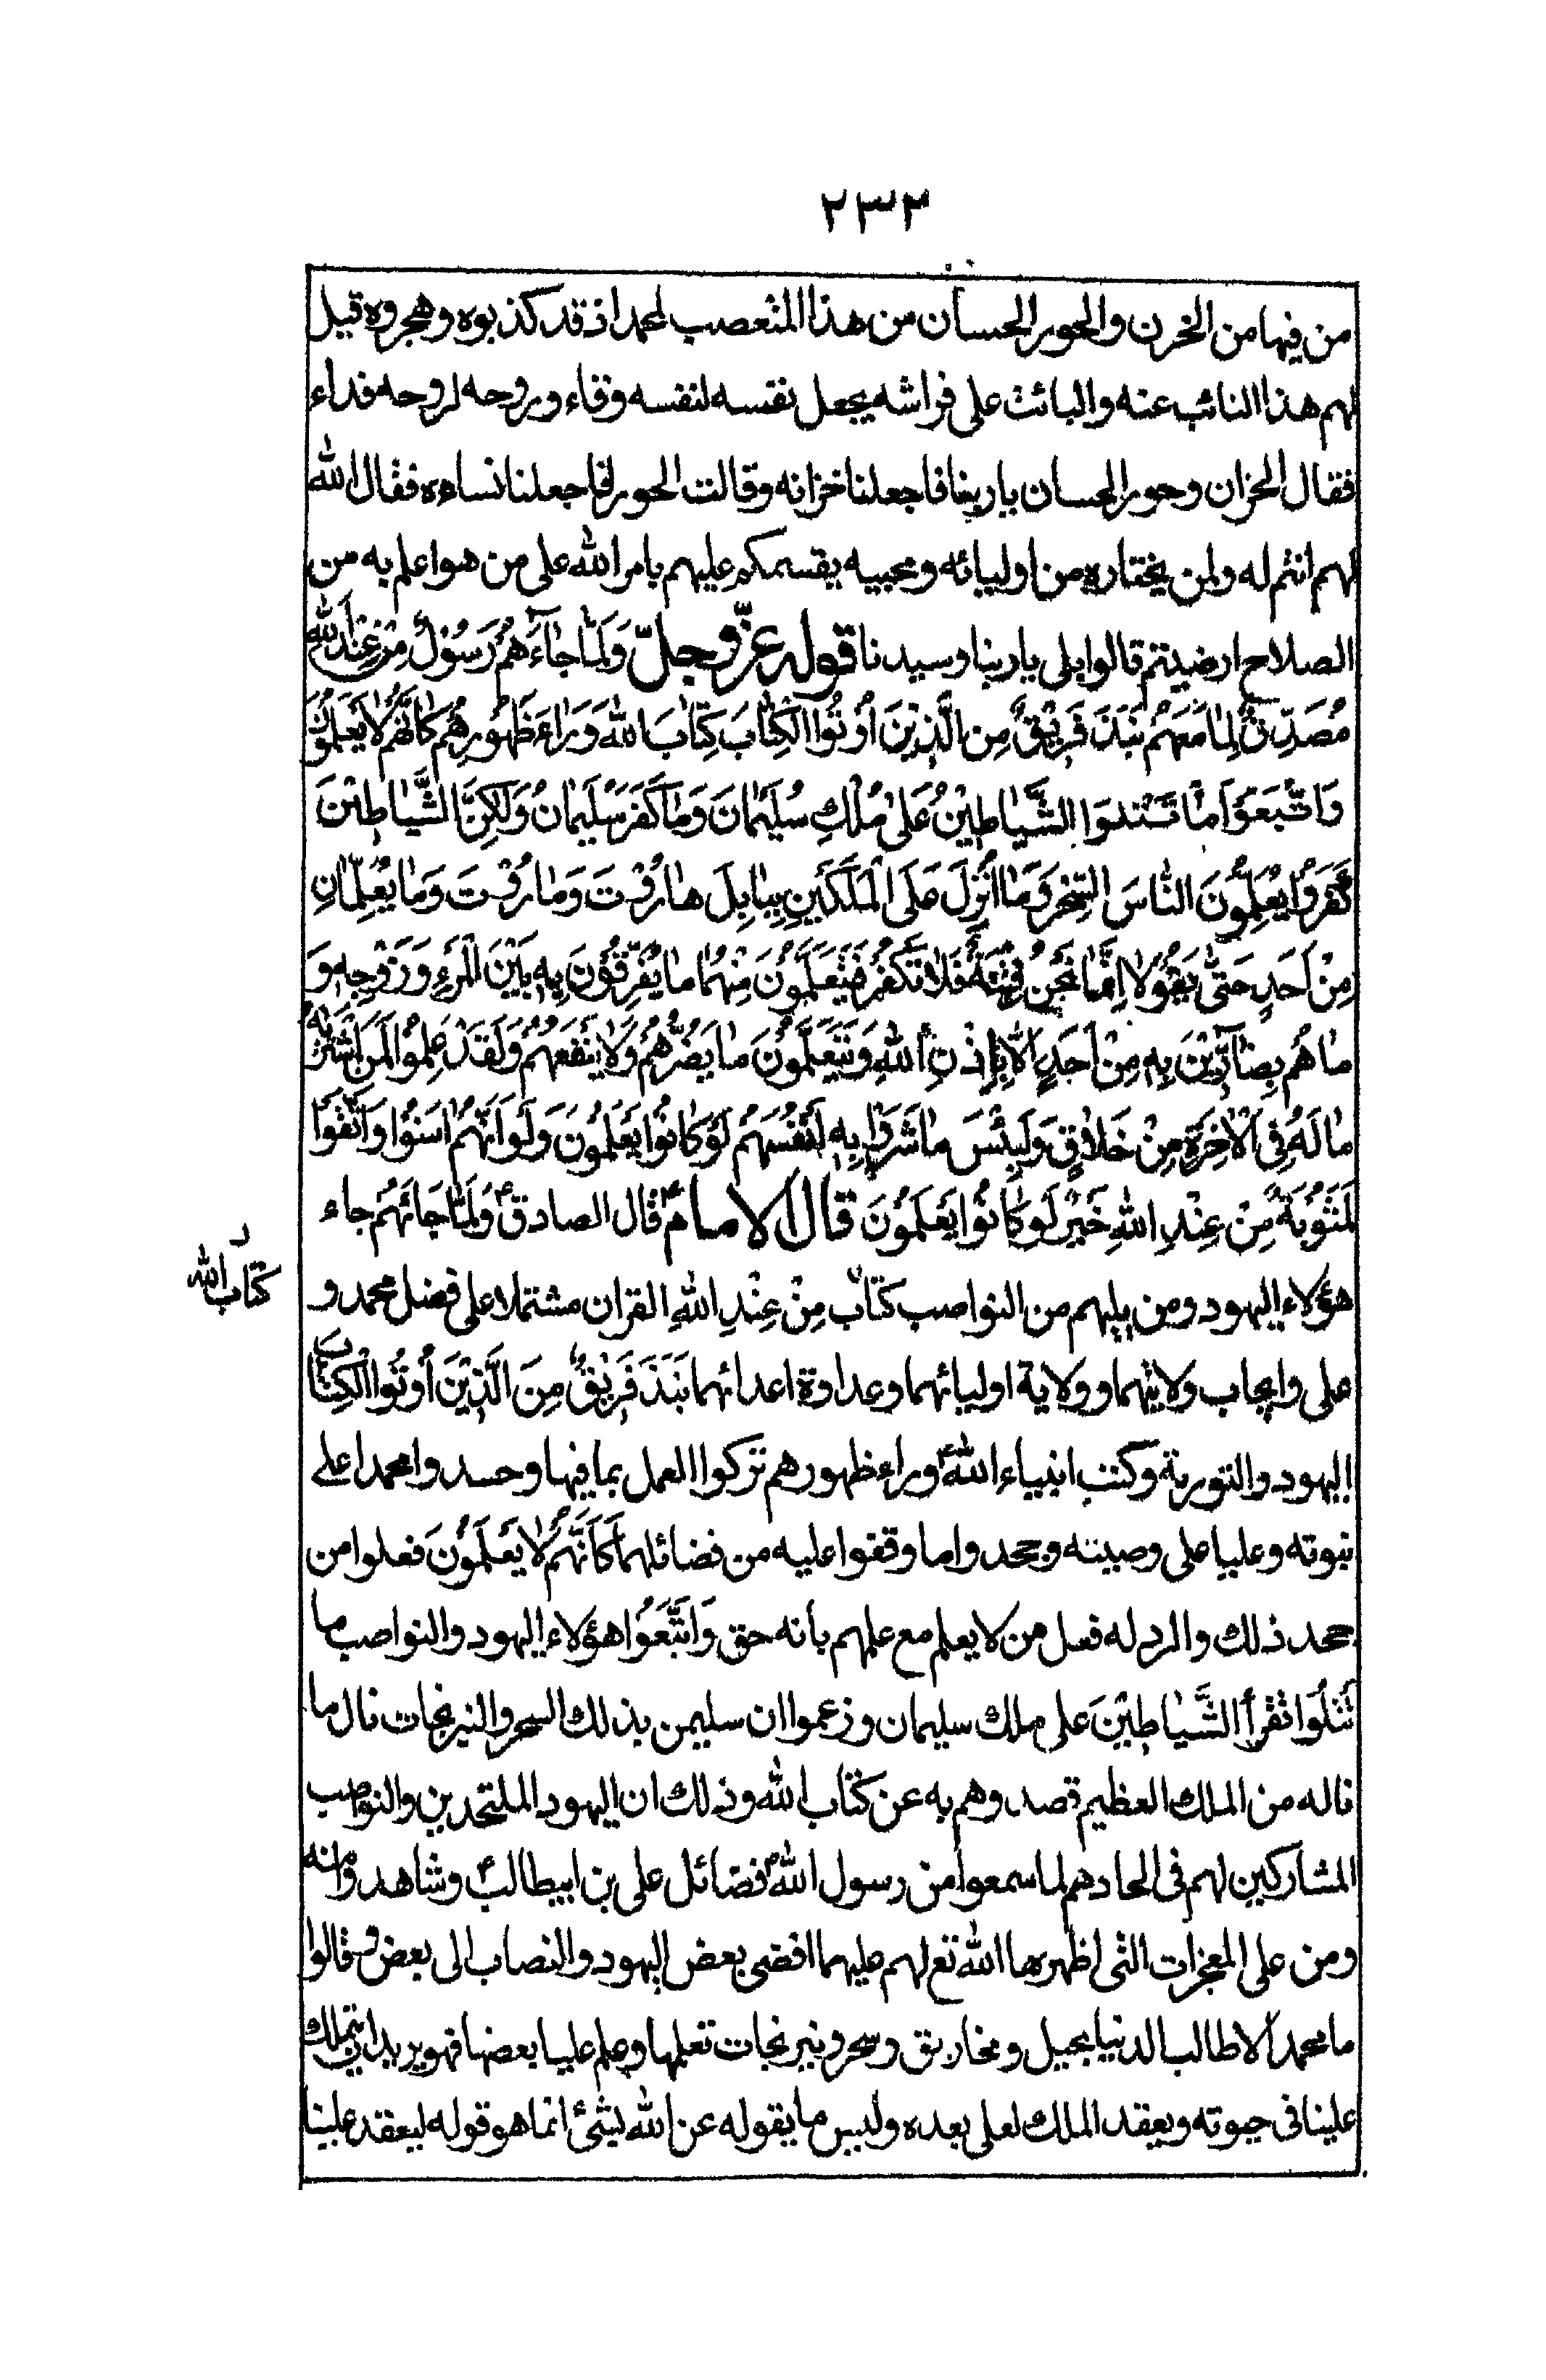 ٢٣٢
من فيها من الخزن والحور الحسان من هذا المتعصب لمحمد اذ قد كذبوه وهجروه قيل
لهم هذا النائب عنه والبائت على فراشه يجعل نفسه لنفسه وقاء وروحه لروحه فداء
فقال الخزان وحور الحسان يا ربنا فاجعلنا خزانه وقالت الحور فاجعلنا نساءه فقال الله
لهم انتم له ولمن يختاره من اوليائه ومحبيه يقسمكم عليهم بامر الله على من هو اعلم به من
الصلاح ارضيتم قالوا بلى يا ربنا وسيدنا قوله عزّ وجلّ وَلَمّا جاءَهُمْ رَسُوْلٌ مِنْ عِنْدِ اللهِ
مُصَدِّقٌ لِما مَعَهُمْ نَبَذَ فَرِيْقٌ مِن الَّذِيْنَ اُوْتُوا الْكِتابَ كِتابَ اللهِ وَراءَ ظُهُورِهِمْ كَاَنَّهُمْ لا يَعْلَمُوْنَ
وَاتَّبَعُوْا ما تَتْلُوا الشَّياطِيْنُ عَلى مُلْكِ سُلَيْمانَ وَما كَفَرَ سُلَيْمانُ وَلكِنَّ الشَّياطِيْنَ
كَفَرُوْا يُعَلِّمُوْنَ النّاسَ السِّحْرَ وَما اُنْزِلَ عَلَى الْمَلَكَيْنِ بِبابِلَ هارُوْتَ وَمارُوْتَ وَما يُعَلِّمانِ
مِنْ اَحَدٍ حَتّى يَقُوْلا اِنَّما نَحْنُ فِتْنَةٌ فَلا تَكْفُرْ فَيَتَعَلَّمُوْنَ مِنْهُما ما يُفَرِّقُوْنَ بِهِ بَيْنَ الْمَرْءِ وَزَوْجِهِ وَ
ما هُمْ بِضارِّيْنَ بِهِ مِنْ اَحَدٍ اِلاّ بِاِذْنِ اللهِ وَيَتَعَلَّمُوْنَ ما يَضُرُّهُمْ وَلا يَنْفَعُهُمْ وَلَقَدْ عَلِمُوْا لَمَنِ اشْتَراهُ
ما لَهُ فِي الْاخِرَةِ مِنْ خَلاقٍ وَلَبِئْسَ ما شَرَوْا بِهِ اَنْفُسَهُمْ لَوْ كانُوْا يَعْلَمُوْنَ وَلَوْ اَنَّهُمْ امَنُوْا وَاتَّقَوْا
لَمَثُوْبَةٌ مِنْ عِنْدِ اللهِ خَيْرٌ لَوْ كانُوْا يَعْلَمُوْنَ قال الامامؑ قال الصادقؑ وَلَمّا جائَهُمْ جاء
هؤلاء اليهود ومن يليهم من النواصب كتابٌ مِنْ عِنْدِ اللهِ القران مشتملا على فضل محمد و
على وايجاب ولايتهما وولاية اوليائهما وعداوة اعدائهما نَبَذَ فَرِيْقٌ مِنَ الَّذِيْنَ اُوْتُوا الْكِتابَ
كتاب الله
اليهود والتورية وكتب انبياء اللهؑ وراء ظهورهم تركوا العمل بما فيها وحسدوا محمدا على
نبوته وعليا على وصيته وجحدوا ما وقفوا عليه من فضائلهما كَاَنَّهُمْ لا يَعْلَمُوْنَ فعلوا من
جحد ذلك والرد له فعل من لا يعلم مع علمهم بانه حق وَاتَّبَعُوْا هؤلاء اليهود والنواصب ما
تَتْلُوا تقرأ الشَّياطِيْنَ على ملك سليمان وزعموا ان سليمن بذلك السحر والنيرنجات نال ما
ناله من الملك العظيم قصدوهم به عن كتاب الله وذلك ان اليهود الملحدين والنواصب
المشاركين لهم فى الحادهم لما سمعوا من رسول اللهؐ فضائل على بن ابيطالبؑ وشاهدوا منه
ومن على المعجزات التى اظهرها الله تع لهم عليهما افضى بعض اليهود والنصاب الى بعض وقالوا
ما محمد الا طالب الدنيا بحيل ومخاريق وسحر ونيرنجات تعلمها وعلم عليا بعضها فهو يريد ان يتملك
علينا فى حيوته ويعقد الملك لعلى بعده وليس ما يقوله عن الله بشئ انما هو قوله ليعقد علينا